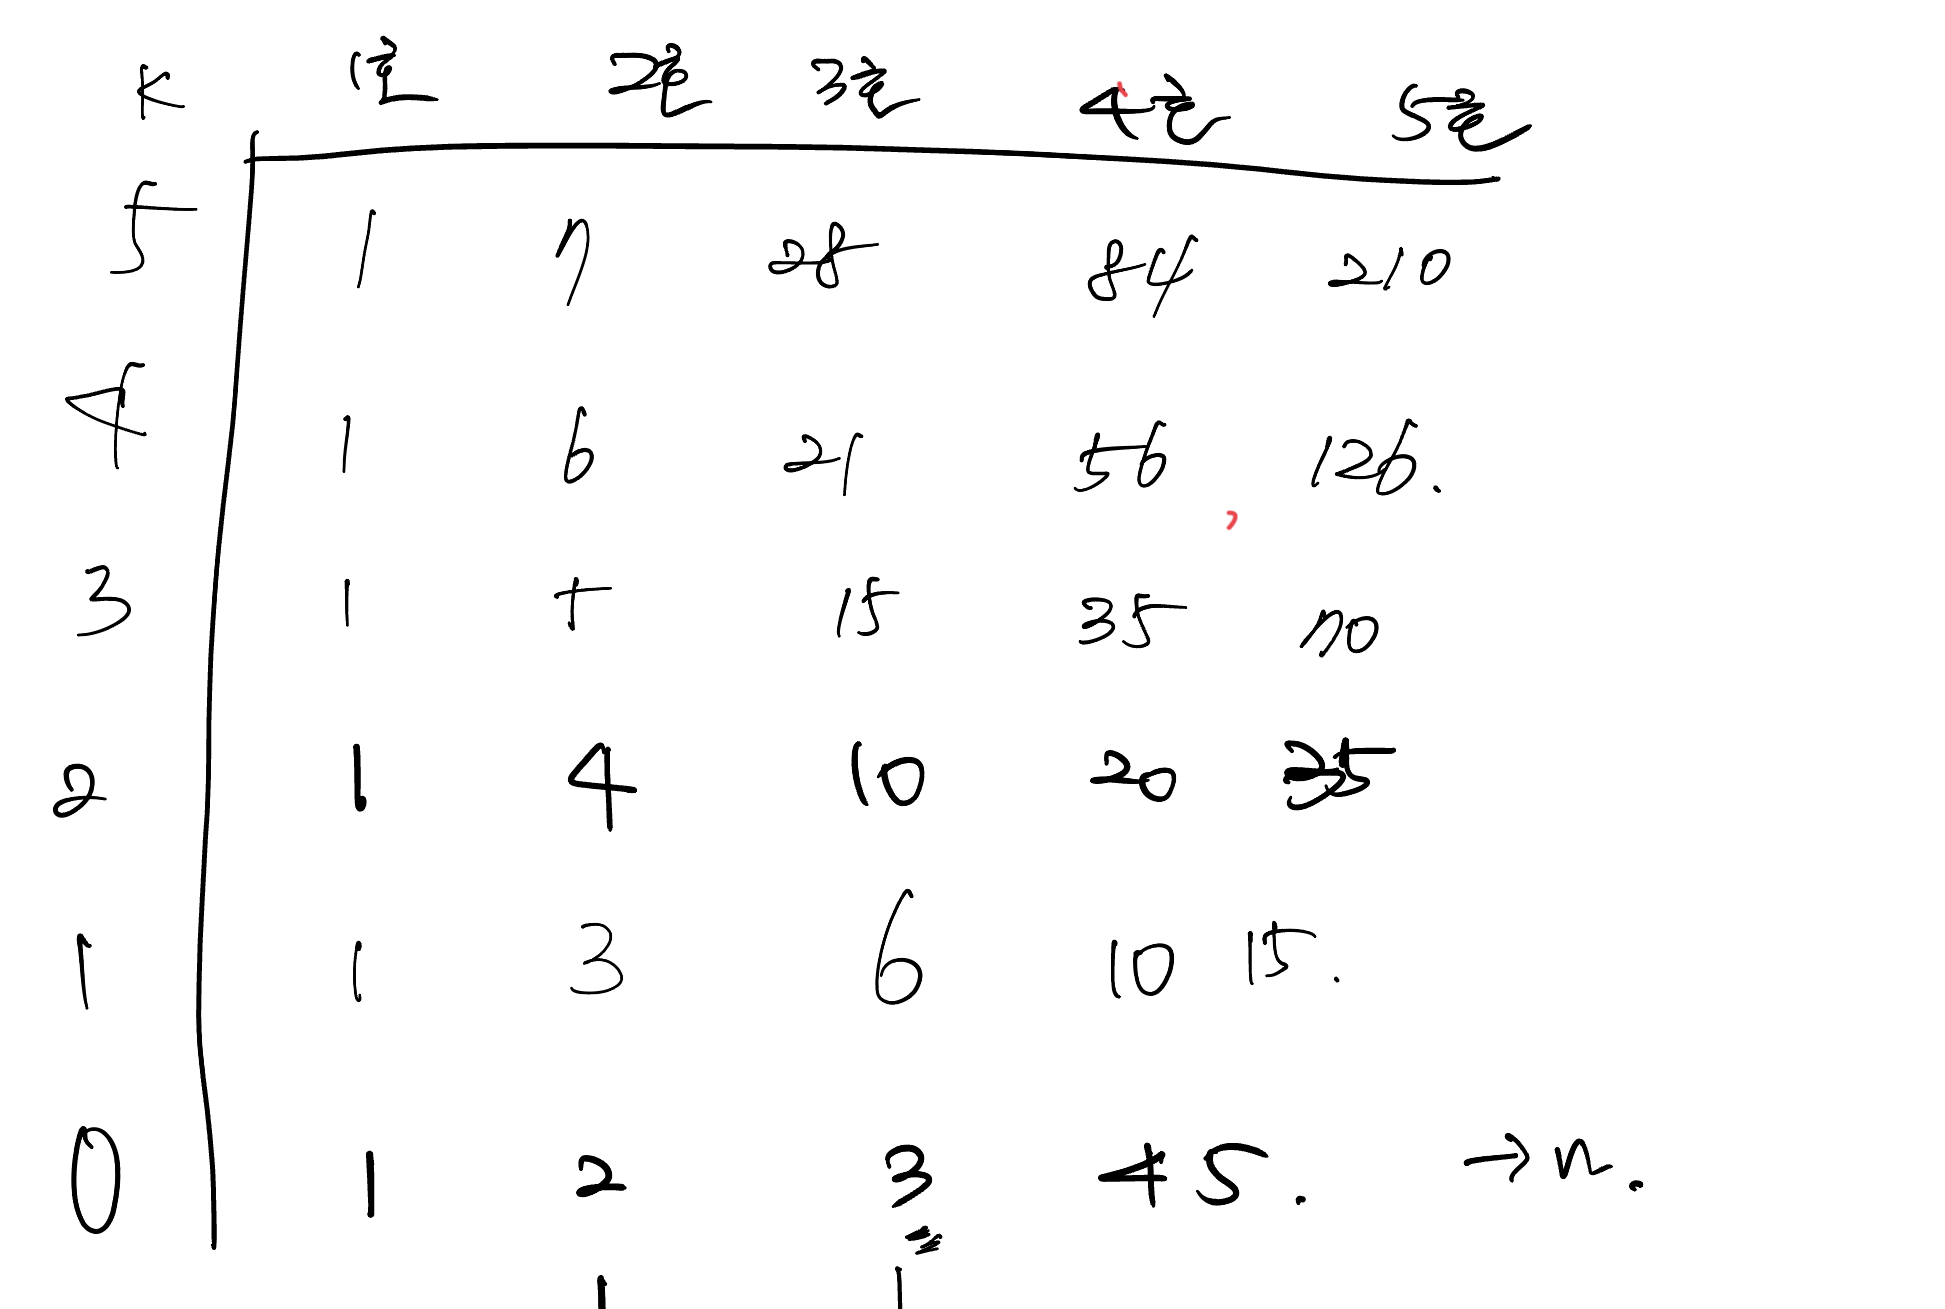 K 1호 2호 3호 4호 5호
5 1 7 28 84 210
4 1 6 21 56 126.
3 1 5 15 35 70
2 1 4 10 20 35
1 1 3 6 10 15.
0 1 2 3 4 5. → n.
1 1